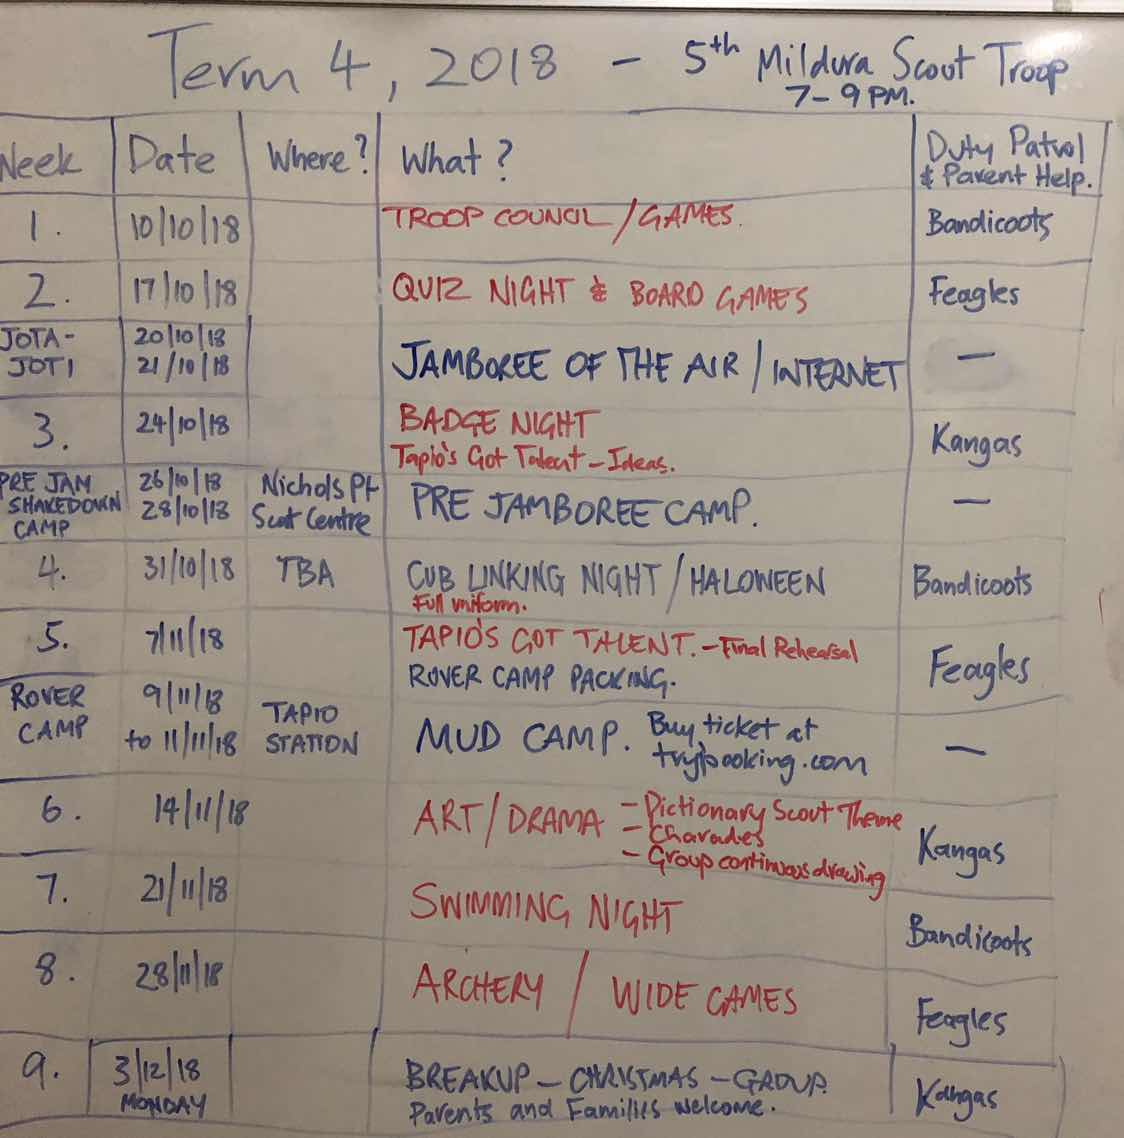 Term 4, 2018 - 5th Mildura Scout Troop
7-9 PM.
Week Date Where? What? Duty Patrol
& Parent Help.
1. 10/10/18 TROOP COUNCIL / GAMES. Bandicoots
2. 17/10/18 QUIZ NIGHT & BOARD GAMES Feagles
JOTA- 20/10/18
JOTI 21/10/18 JAMBOREE OF THE AIR / INTERNET —
3. 24/10/18 BADGE NIGHT Kangas
Tapio's Got Talent - Ideas.
PRE JAM 26/10/18 Nichols Pt
SHAKEDOWN 28/10/18 Scout Centre PRE JAMBOREE CAMP. —
CAMP
4. 31/10/18 TBA CUB LINKING NIGHT / HALOWEEN Bandicoots
Full uniform.
5. 7/11/18 TAPIO'S GOT TALENT. - Final Rehearsal Feagles
ROVER CAMP PACKING.
ROVER 9/11/18 TAPIO Buy ticket at
CAMP to 11/11/18 STATION MUD CAMP. trybooking.com —
6. 14/11/18 ART/DRAMA - Pictionary Scout Theme Kangas
- Charades
- Group continuous drawing
7. 21/11/18 SWIMMING NIGHT Bandicoots
8. 28/11/18 ARCHERY / WIDE GAMES Feagles
9. 3/12/18 BREAKUP - CHRISTMAS - GROUP. Kangas
MONDAY Parents and Families welcome.